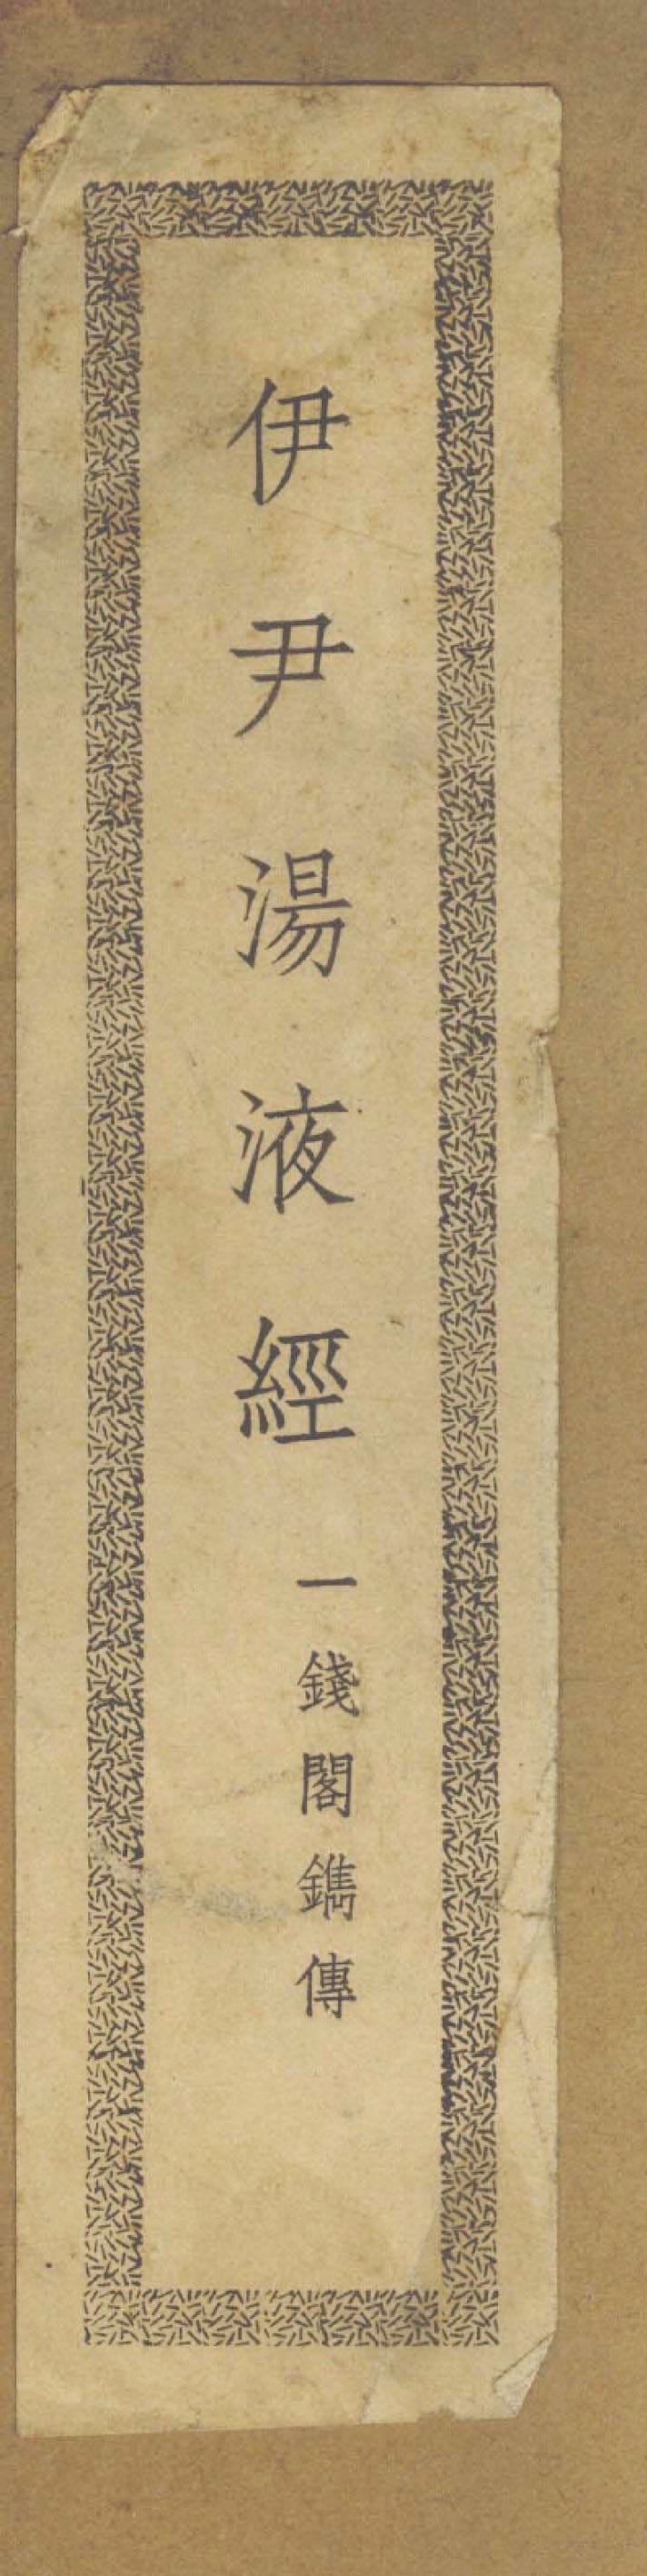 伊尹湯液經
一錢閣鐫傳